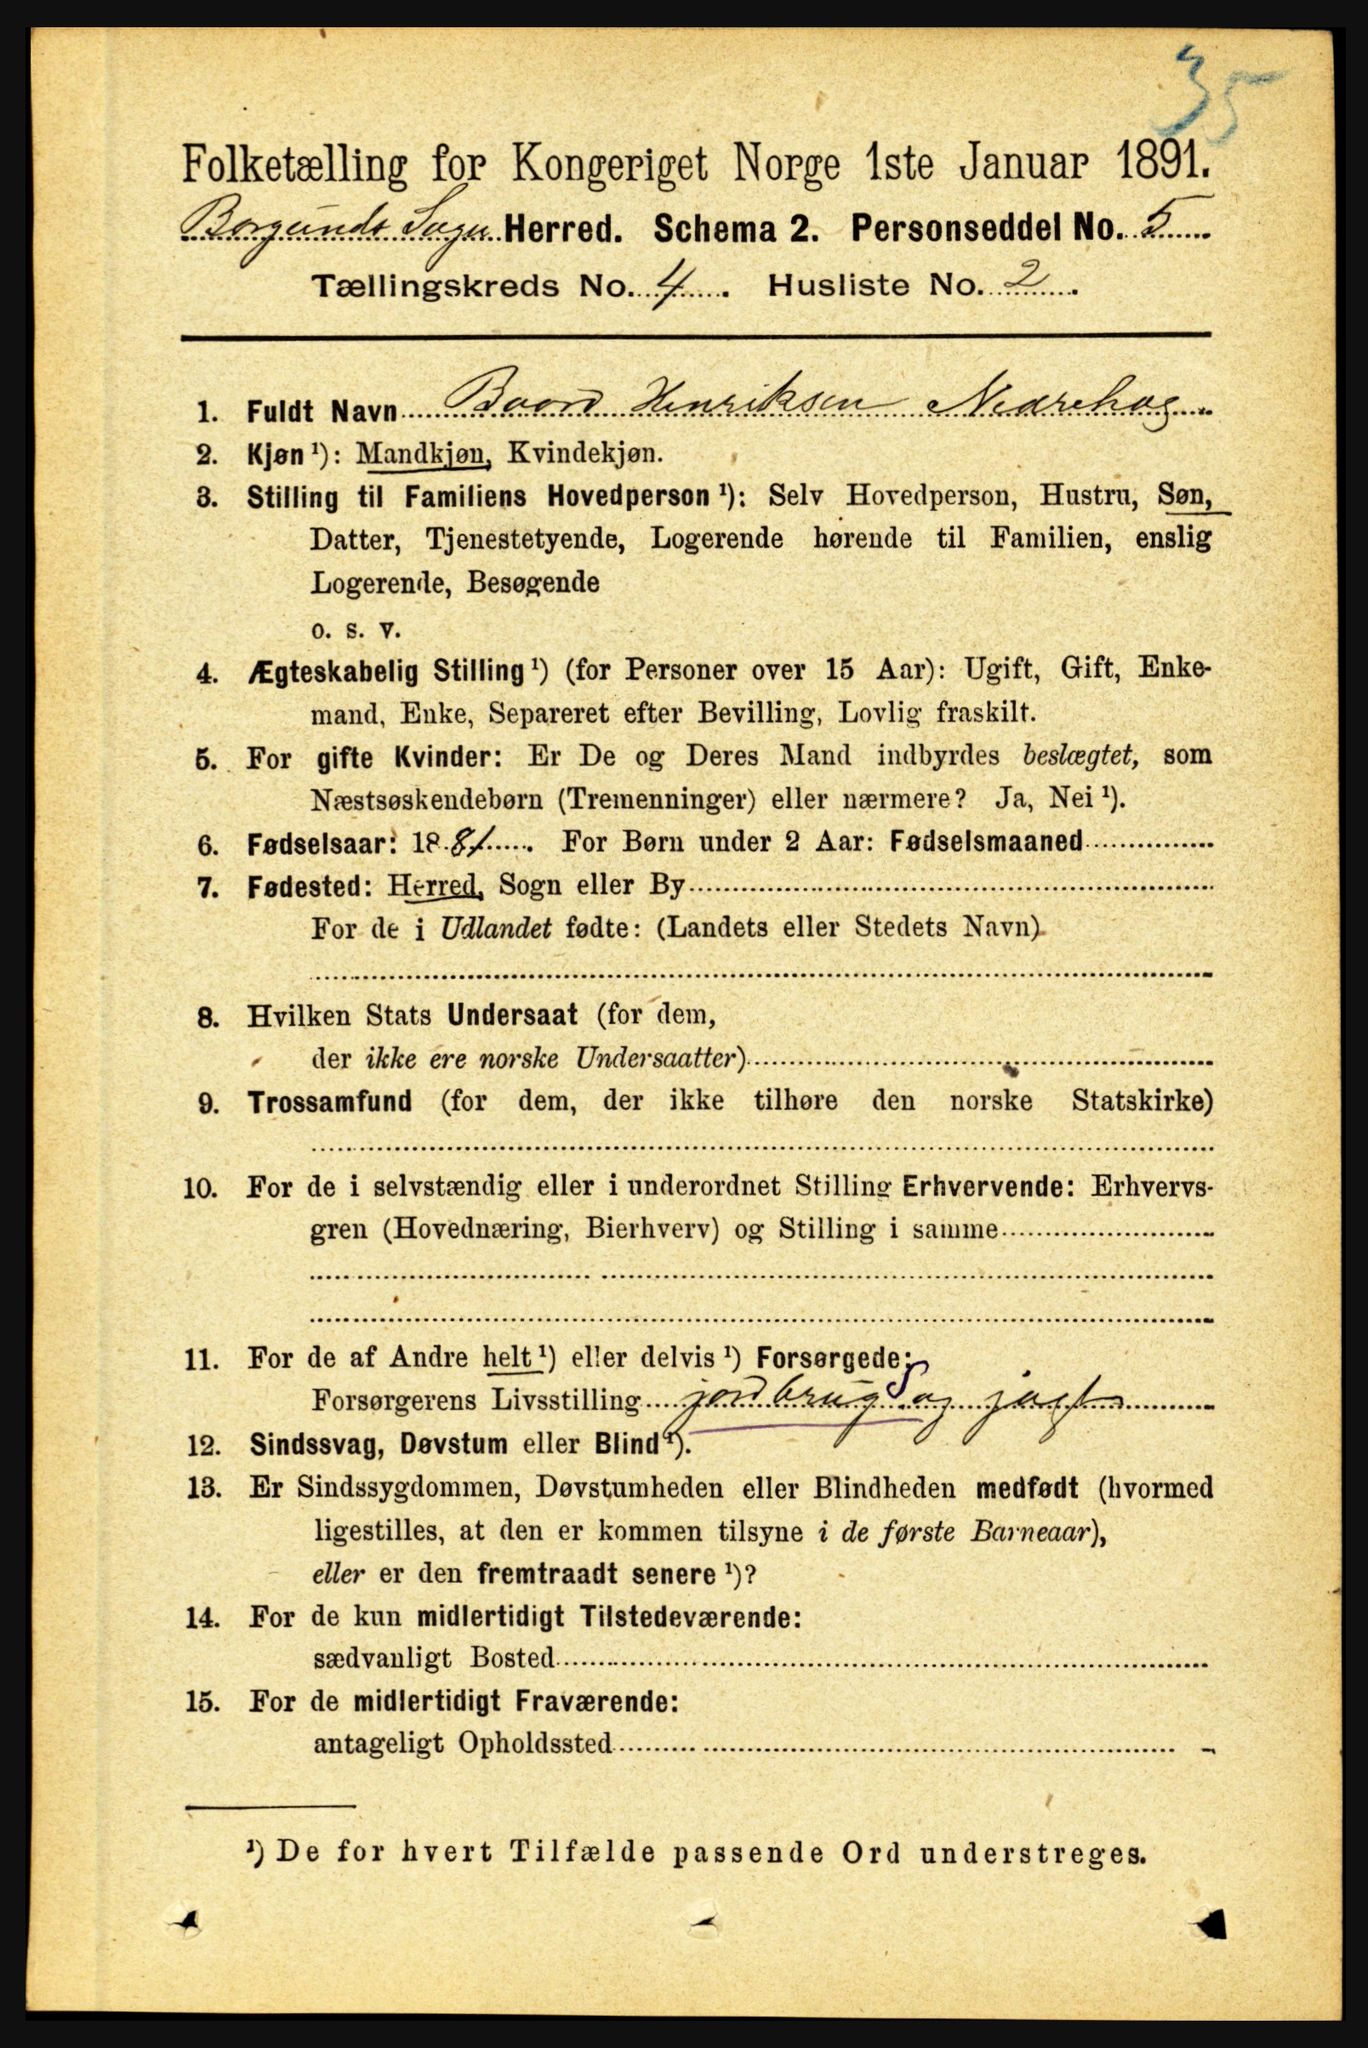 35
Folketælling for Kongeriget Norge 1ste Januar 1891.
Borgunds Sogn Herred. Schema 2. Personseddel No. 5
Tællingskreds No. 4. Husliste No. 2.
1. Fuldt Navn Baard Henriksen Nedrehag
2. Kjøn ¹): Mandkjøn, Kvindekjøn.
3. Stilling til Familiens Hovedperson ¹): Selv Hovedperson, Hustru, Søn,
Datter, Tjenestetyende, Logerende hørende til Familien, enslig
Logerende, Besøgende
o. s. v.
4. Ægteskabelig Stilling ¹) (for Personer over 15 Aar): Ugift, Gift, Enke-
mand, Enke, Separeret efter Bevilling, Lovlig fraskilt.
5. For gifte Kvinder: Er De og Deres Mand indbyrdes beslægtet, som
Næstsøskendebørn (Tremenninger) eller nærmere? Ja, Nei ¹).
6. Fødselsaar: 1881. For Børn under 2 Aar: Fødselsmaaned
7. Fødested: Herred, Sogn eller By
For de i Udlandet fødte: (Landets eller Stedets Navn)
8. Hvilken Stats Undersaat (for dem,
der ikke ere norske Undersaatter)
9. Trossamfund (for dem, der ikke tilhøre den norske Statskirke)
10. For de i selvstændig eller i underordnet Stilling Erhvervende: Erhvervs-
gren (Hovednæring, Bierhverv) og Stilling i samme
11. For de af Andre helt ¹) eller delvis ¹) Forsørgede:
Forsørgerens Livsstilling jordbrug S og jagt
12. Sindssvag, Døvstum eller Blind ¹).
13. Er Sindssygdommen, Døvstumheden eller Blindheden medfødt (hvormed
ligestilles, at den er kommen tilsyne i de første Barneaar),
eller er den fremtraadt senere ¹)?
14. For de kun midlertidigt Tilstedeværende:
sædvanligt Bosted
15. For de midlertidigt Fraværende:
antageligt Opholdssted
¹) De for hvert Tilfælde passende Ord understreges.